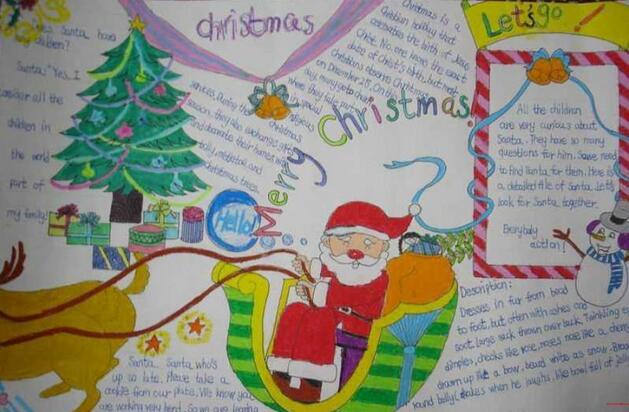 christmas
Let's go !
Does Santa have
children?
Santa: "Yes. I
consider all the
children in
the world
part of
my family!
Christmas is a
christian holiday that
celebrates the birth of Jesus
Christ. No one knows the exact
date of Christ's birth, but most
christians observe Christmas
on December 25. On this
day, many go to church
where they take part
in special
religious
services. During the Christmas
season, they also exchange gifts
and decorate their homes with
holly, mistletoe and
christmas trees.
Merry Christmas!
Hello!
All the children
are very curious about
Santa. They have so many
questions for him. So we need
to find Santa for them. Here is
a detailed file of Santa. Let's
look for Santa together.
Everybody
action!
Description:
Dresses in fur from head
to foot, but often with ashes and
soot. large sack thrown over back. Twinkling
dimples, cheeks like rose, noses rose like a
drawn up like a bow, beard white as snow.
round belly shakes when he laughs, like bowl full of
Santa Santa who's
up so late. Please take a
cookie from our plate. We know you
are working very hard. So we are leaving